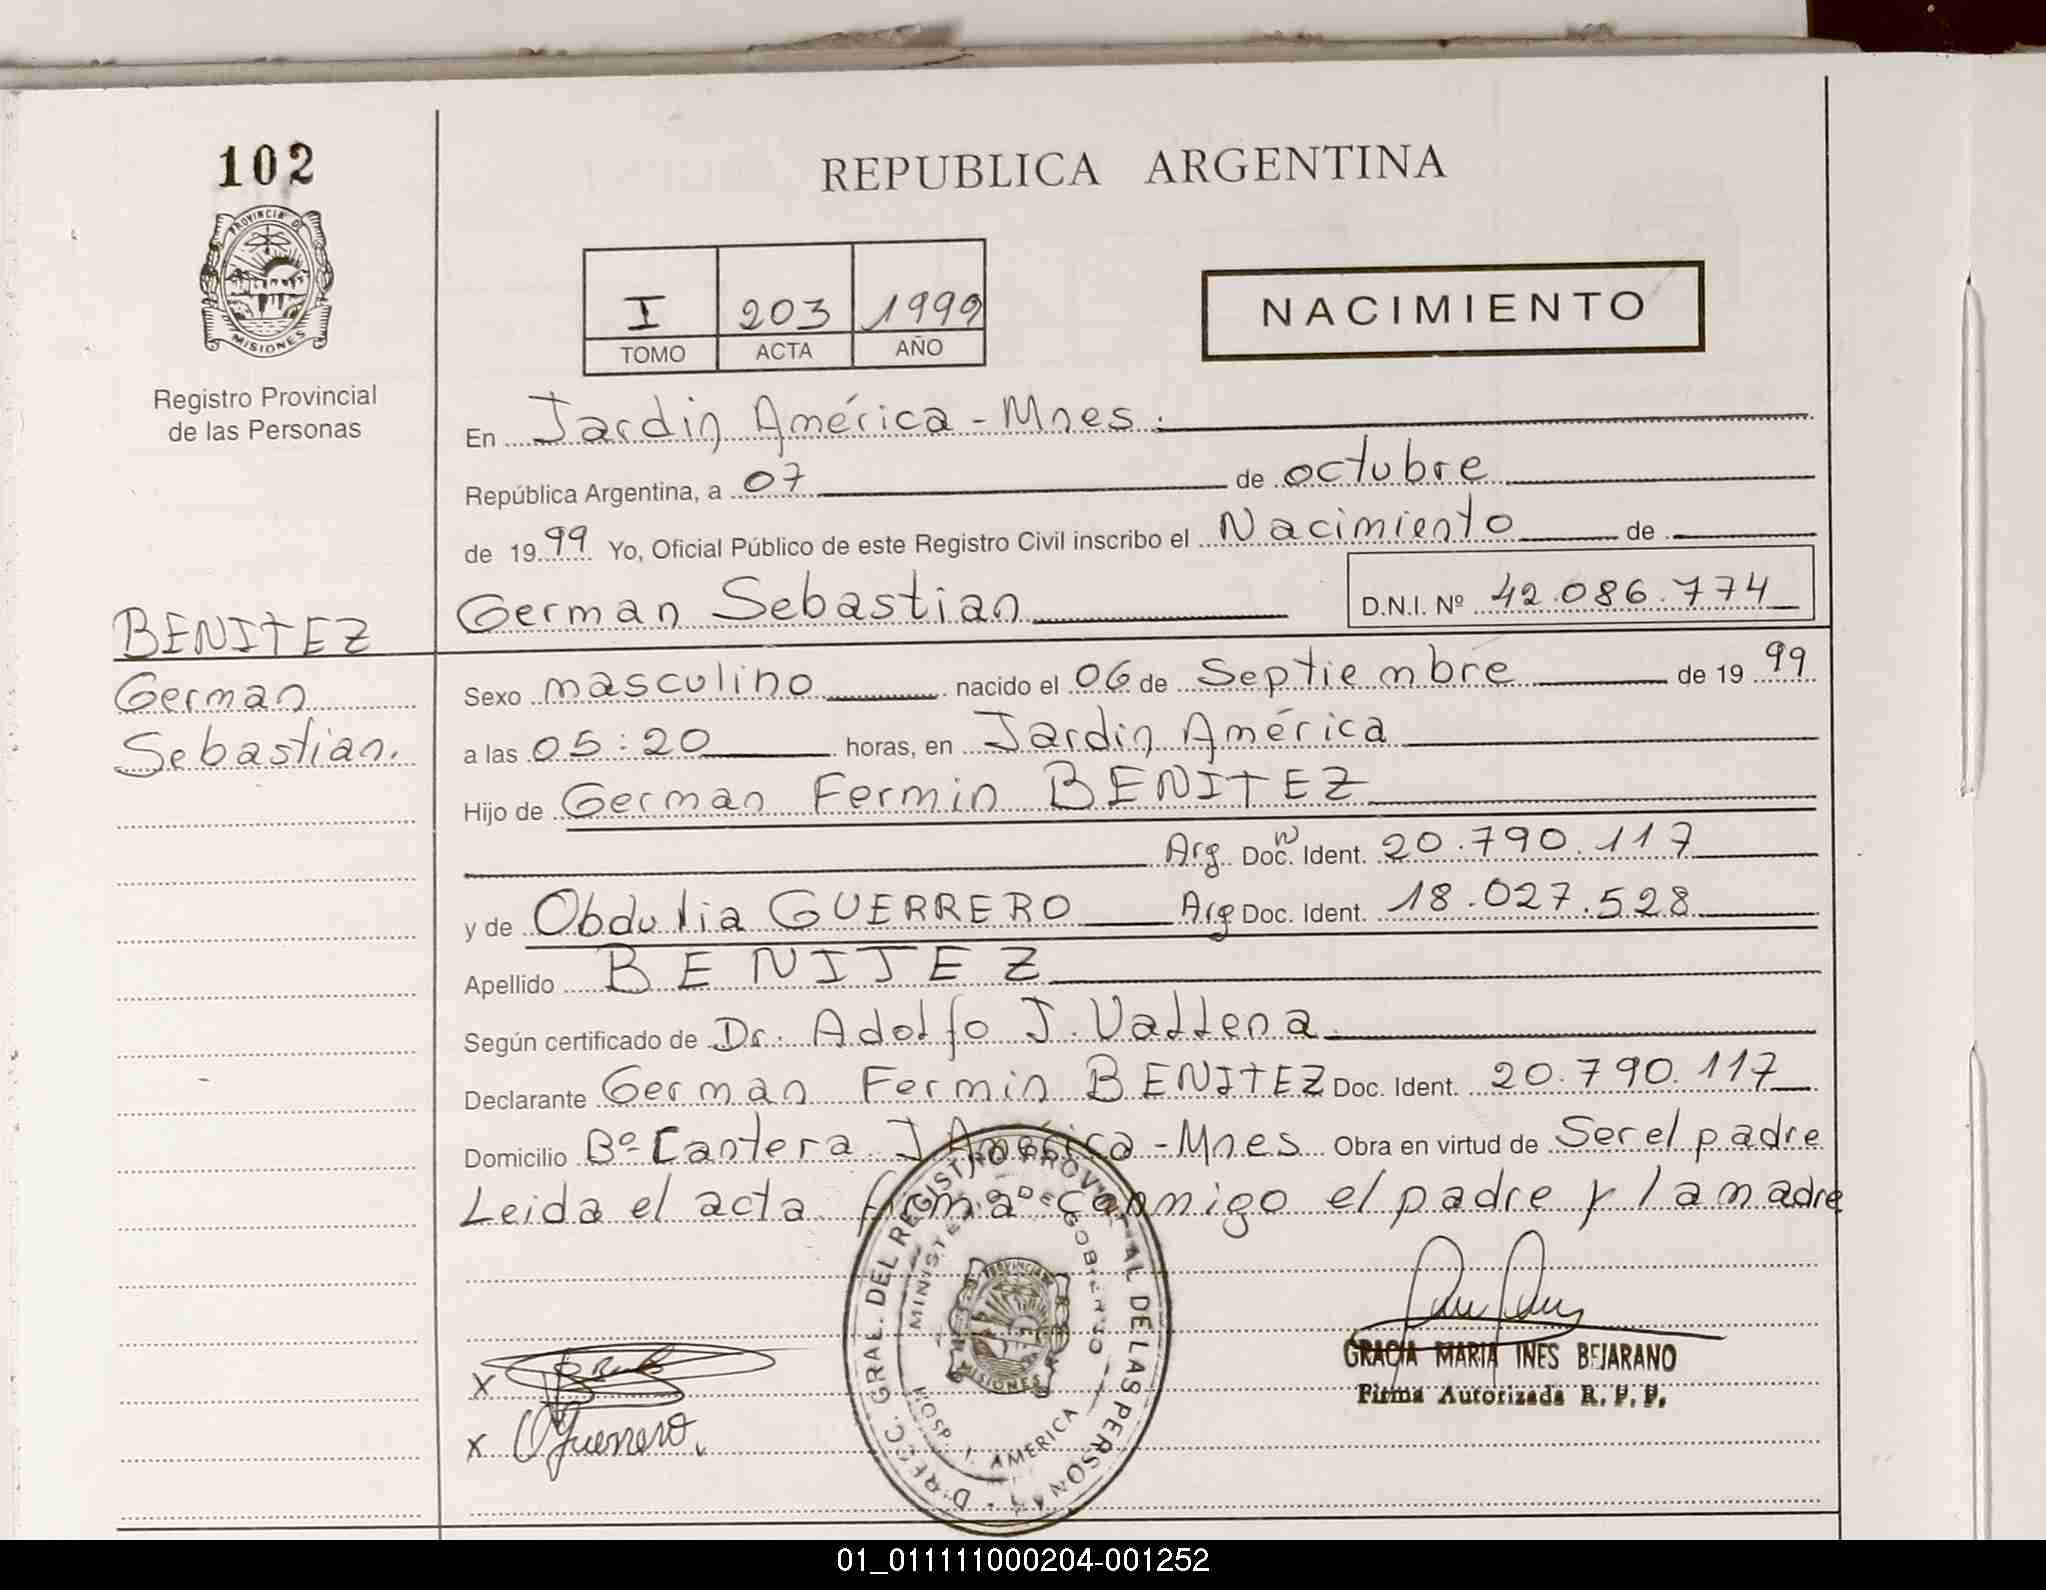 102
PROVINCIA DE
MISIONES
Registro Provincial
de las Personas
BENITEZ
German
Sebastian.
REPUBLICA ARGENTINA
I 203 1999
TOMO ACTA AÑO
NACIMIENTO
En Jardin América - Mnes.
República Argentina, a 07 de octubre
de 1999 Yo, Oficial Público de este Registro Civil inscribo el Nacimiento de
German Sebastian D.N.I. Nº 42.086.774
Sexo masculino nacido el 06 de Septiembre de 1999
a las 05:20 horas, en Jardin América
Hijo de German Fermin BENITEZ
Arg. Doc. Ident. 20.790.117
y de Obdulia GUERRERO Arg Doc. Ident. 18.027.528
Apellido BENITEZ
Según certificado de Dr. Adolfo J.
Declarante German Fermin BENITEZ Doc. Ident. 20.790.117
Domicilio Bº Cantera J. América - Mnes Obra en virtud de Ser el padre
Leida el acta firma conmigo el padre y la madre
DIRECC. GRAL. DEL REGISTRO PROVINCIAL DE LAS PERSONAS
MINISTERIO DE GOBIERNO
HOSP. J. AMERICA
PROVINCIA DE
MISIONES
X
X OGuerrero.
GRACIA MARIA INES BEJARANO
Firma Autorizada R. P. P.
01_011111000204-001252